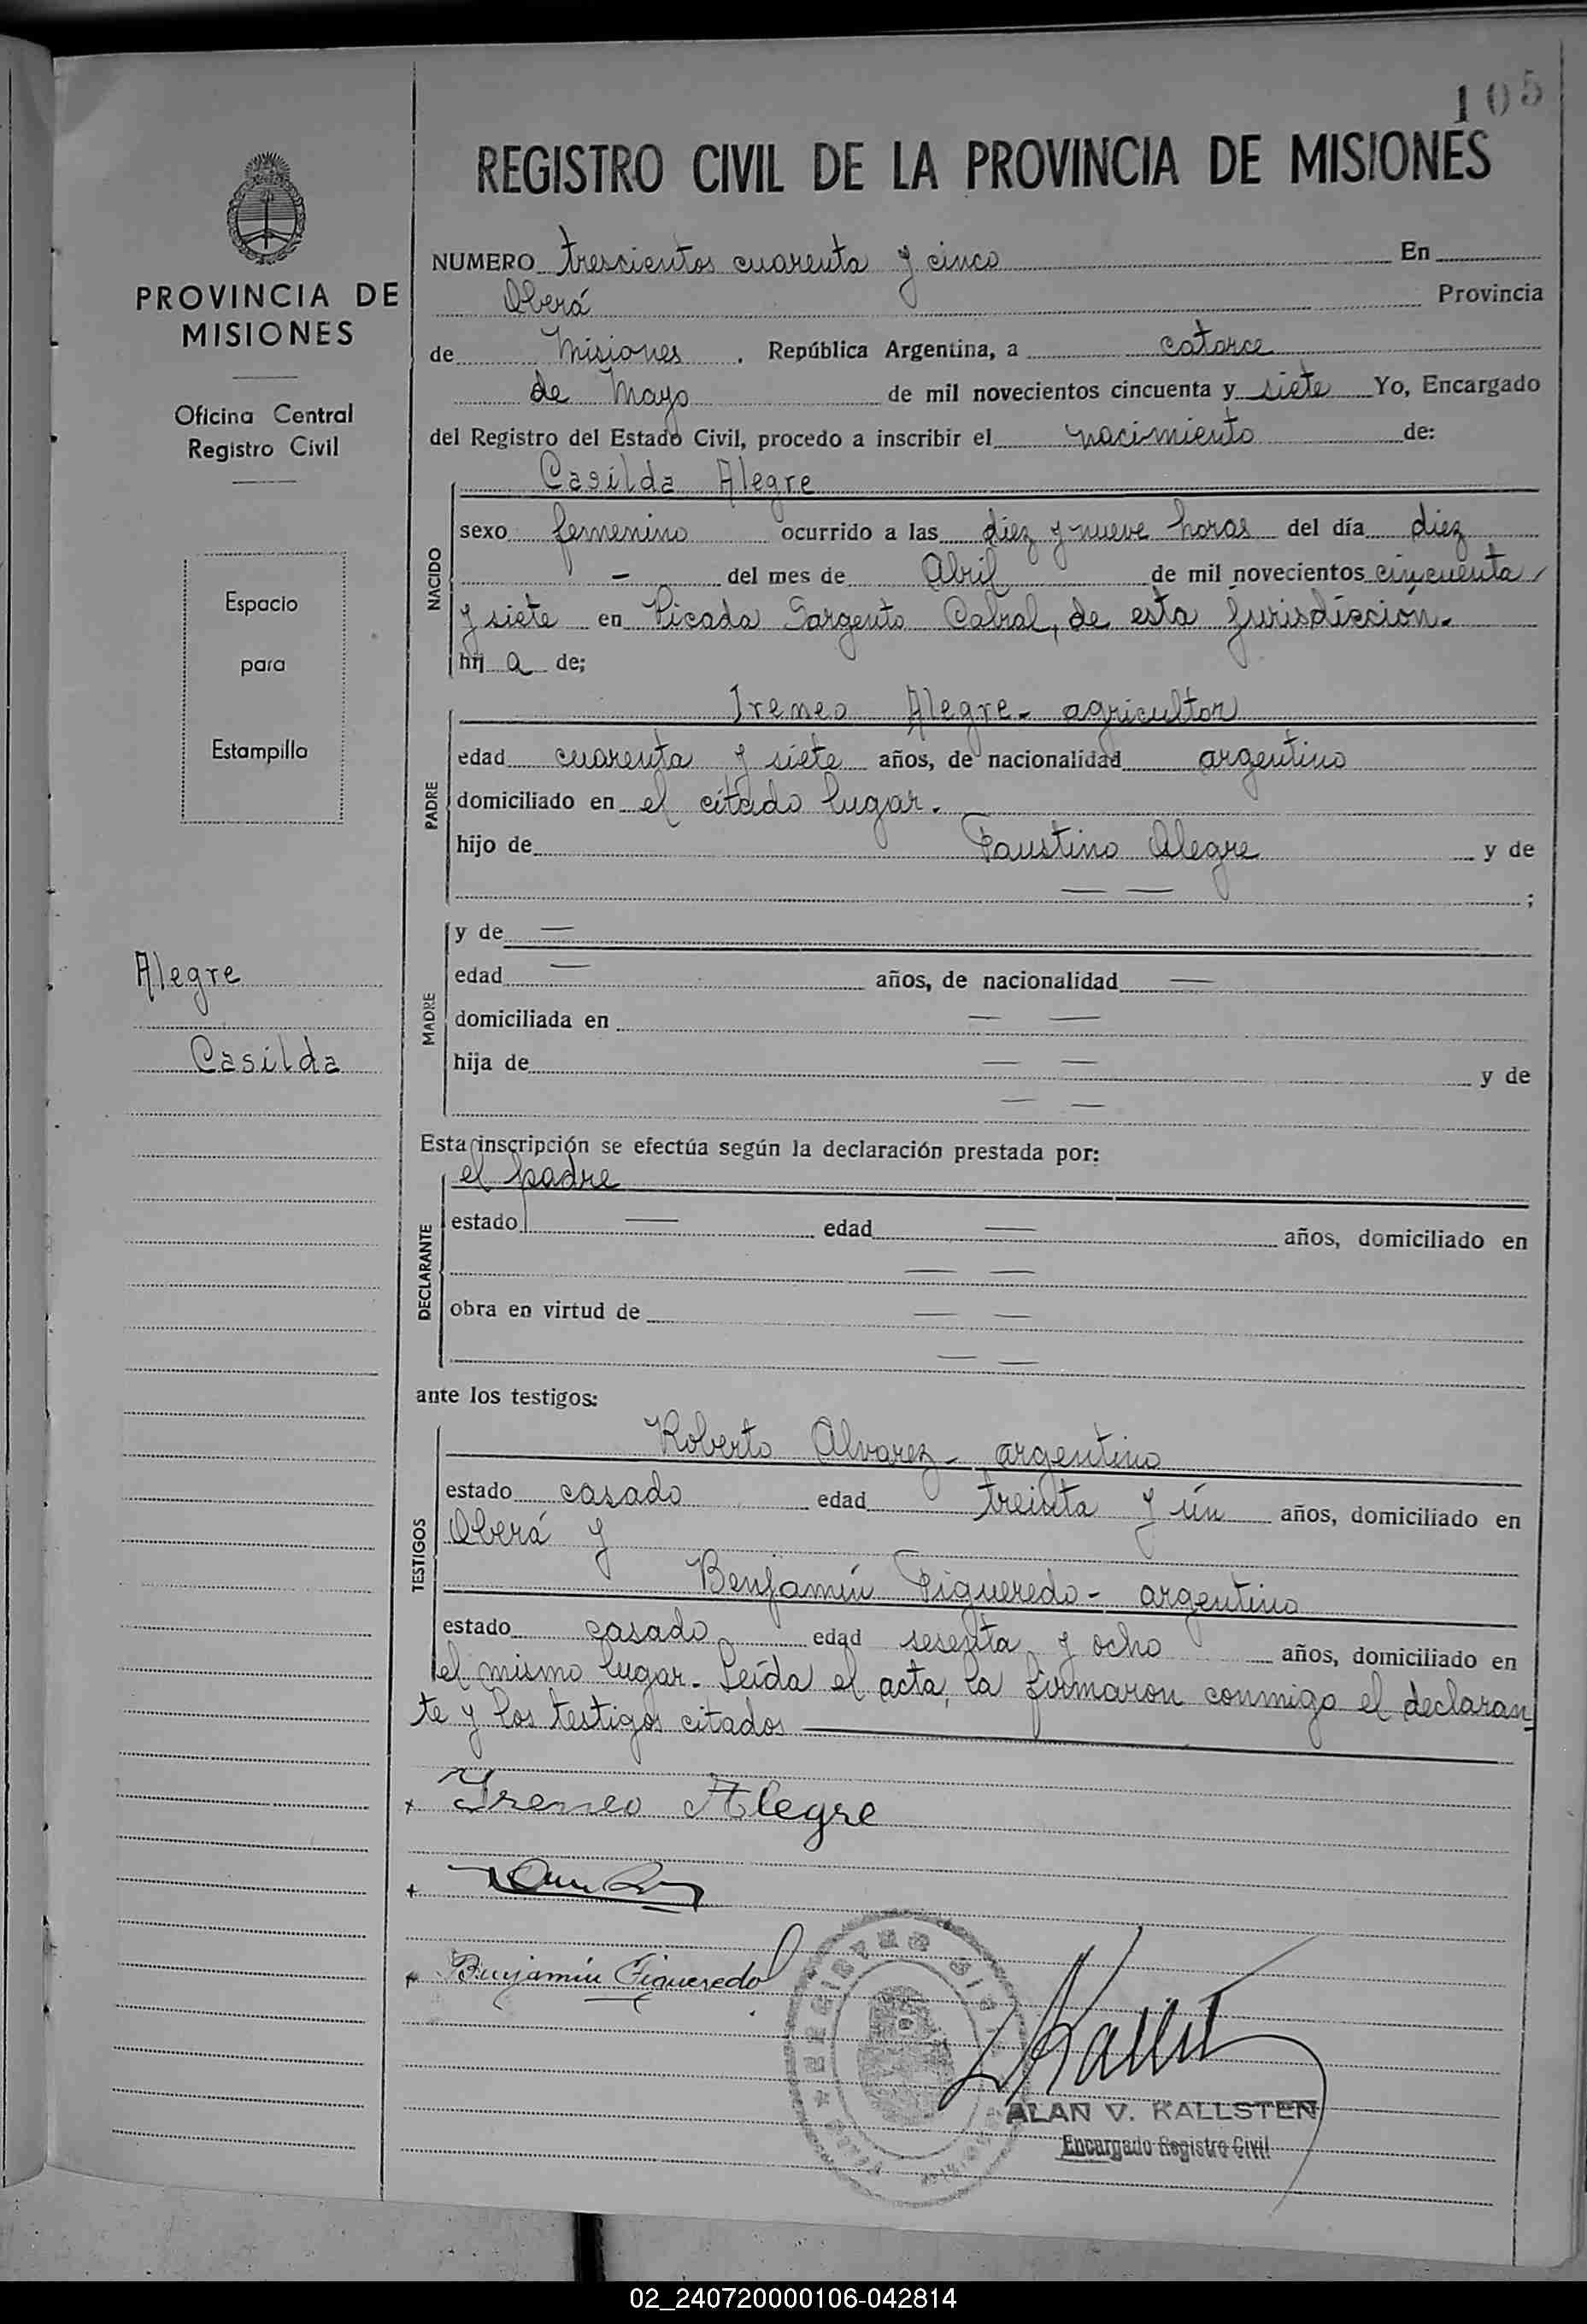 105
REGISTRO CIVIL DE LA PROVINCIA DE MISIONES
PROVINCIA DE
MISIONES
Oficina Central
Registro Civil
Espacio
para
Estampilla
Alegre
Casilda
NUMERO trescientos cuarenta y cinco En
Oberá Provincia
de Misiones, República Argentina, a catorce
de Mayo de mil novecientos cincuenta y siete Yo, Encargado
del Registro del Estado Civil, procedo a inscribir el nacimiento de:
NACIDO
Casilda Alegre
sexo femenino ocurrido a las diez y nueve horas del día diez
- del mes de Abril de mil novecientos cincuenta
y siete en Picada Sargento Cabral, de esta jurisdicción.
hij a de;
PADRE
Ireneo Alegre - agricultor
edad cuarenta y siete años, de nacionalidad argentino
domiciliado en el citado lugar.
hijo de Faustino Alegre y de
— — ;
MADRE
y de —
edad — años, de nacionalidad —
domiciliada en — —
hija de — — y de
— —
Esta inscripción se efectúa según la declaración prestada por:
DECLARANTE
el padre
estado — edad — años, domiciliado en
— —
obra en virtud de — —
— —
ante los testigos:
TESTIGOS
Roberto Alvarez - argentino
estado casado edad treinta y ún años, domiciliado en
Oberá y
Benjamín Figueredo - argentino
estado casado edad sesenta y ocho años, domiciliado en
el mismo lugar. Leída el acta, la firmaron conmigo el declaran-
te y los testigos citados
x Ireneo Alegre
x
x Benjamín Figueredo
REGISTRO CIVIL
Kallst
ALAN V. KALLSTEN
Encargado Registro Civil
02_240720000106-042814